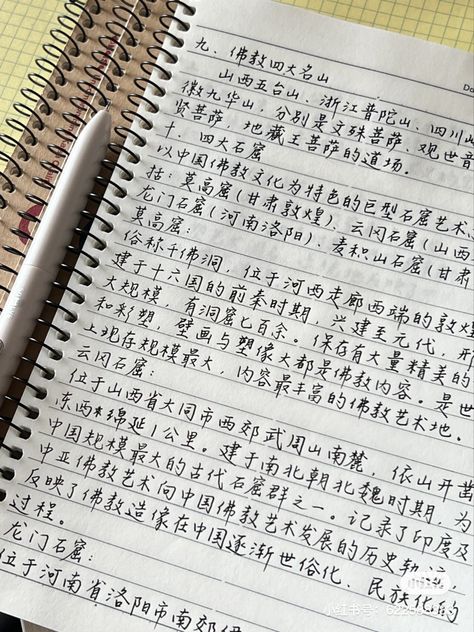 九、佛教四大名山
山西五台山、浙江普陀山、四川
徽九华山，分别是文殊菩萨、观世音
贤菩萨、地藏王菩萨的道场。
十、四大石窟
以中国佛教文化为特色的巨型石窟艺术
括：莫高窟(甘肃敦煌)、云冈石窟(山西
龙门石窟(河南洛阳)、麦积山石窟(甘肃
莫高窟：
俗称千佛洞，位于河西走廊西端的敦煌
建于十六国的前秦时期，兴建至元代，开
大规模，有洞窟七百余。保存有大量精美的
和彩塑，壁画与塑像大都是佛教内容。是世
上现存规模最大，内容最丰富的佛教艺术地。
云冈石窟：
位于山西省大同市西郊武周山南麓，依山开凿
东西绵延1公里。建于南北朝北魏时期，为
中国规模最大的古代石窟群之一。记录了印度及
中亚佛教艺术向中国佛教艺术发展的历史轨
反映了佛教造像在中国逐渐世俗化、民族化的
过程。
龙门石窟：
位于河南省洛阳市南郊伊
小红书
小红书号：